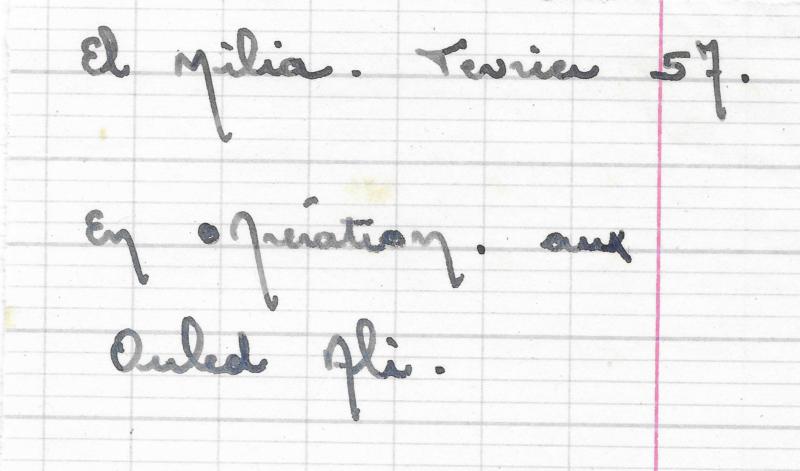 El Milia. Fevrier 57.
En opération. aux
Ouled Ali.